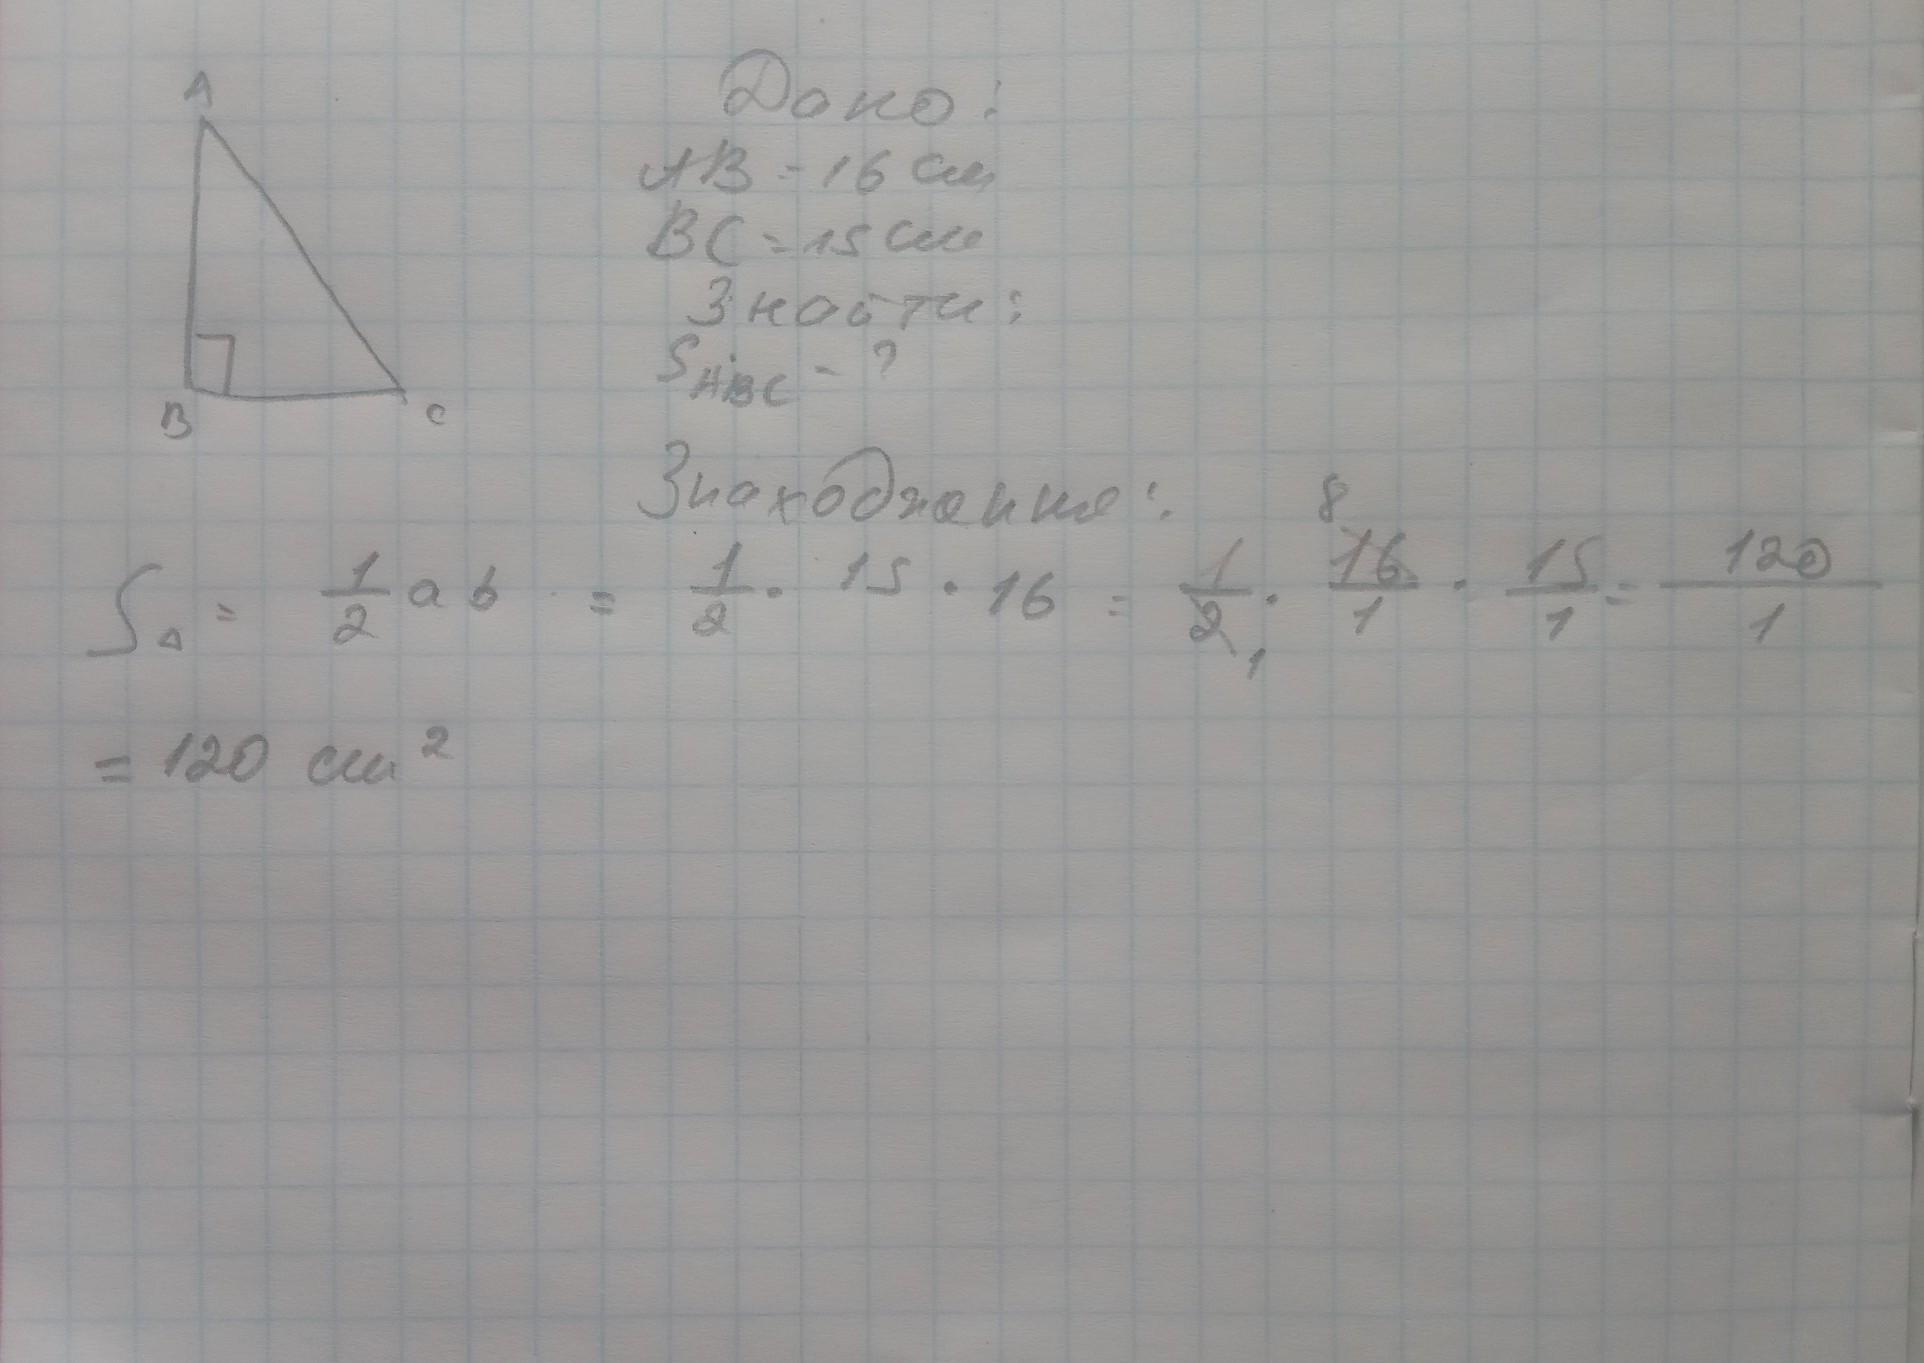 A
B
C
Дано:
AB = 16 см
BC = 15 см
Знайти:
S_ABC - ?
Знаходження:
S_Δ = 1/2 ab = 1/2 · 15 · 16 = 1/2 1 · 8 16/1 · 15/1 = 120/1
= 120 см²